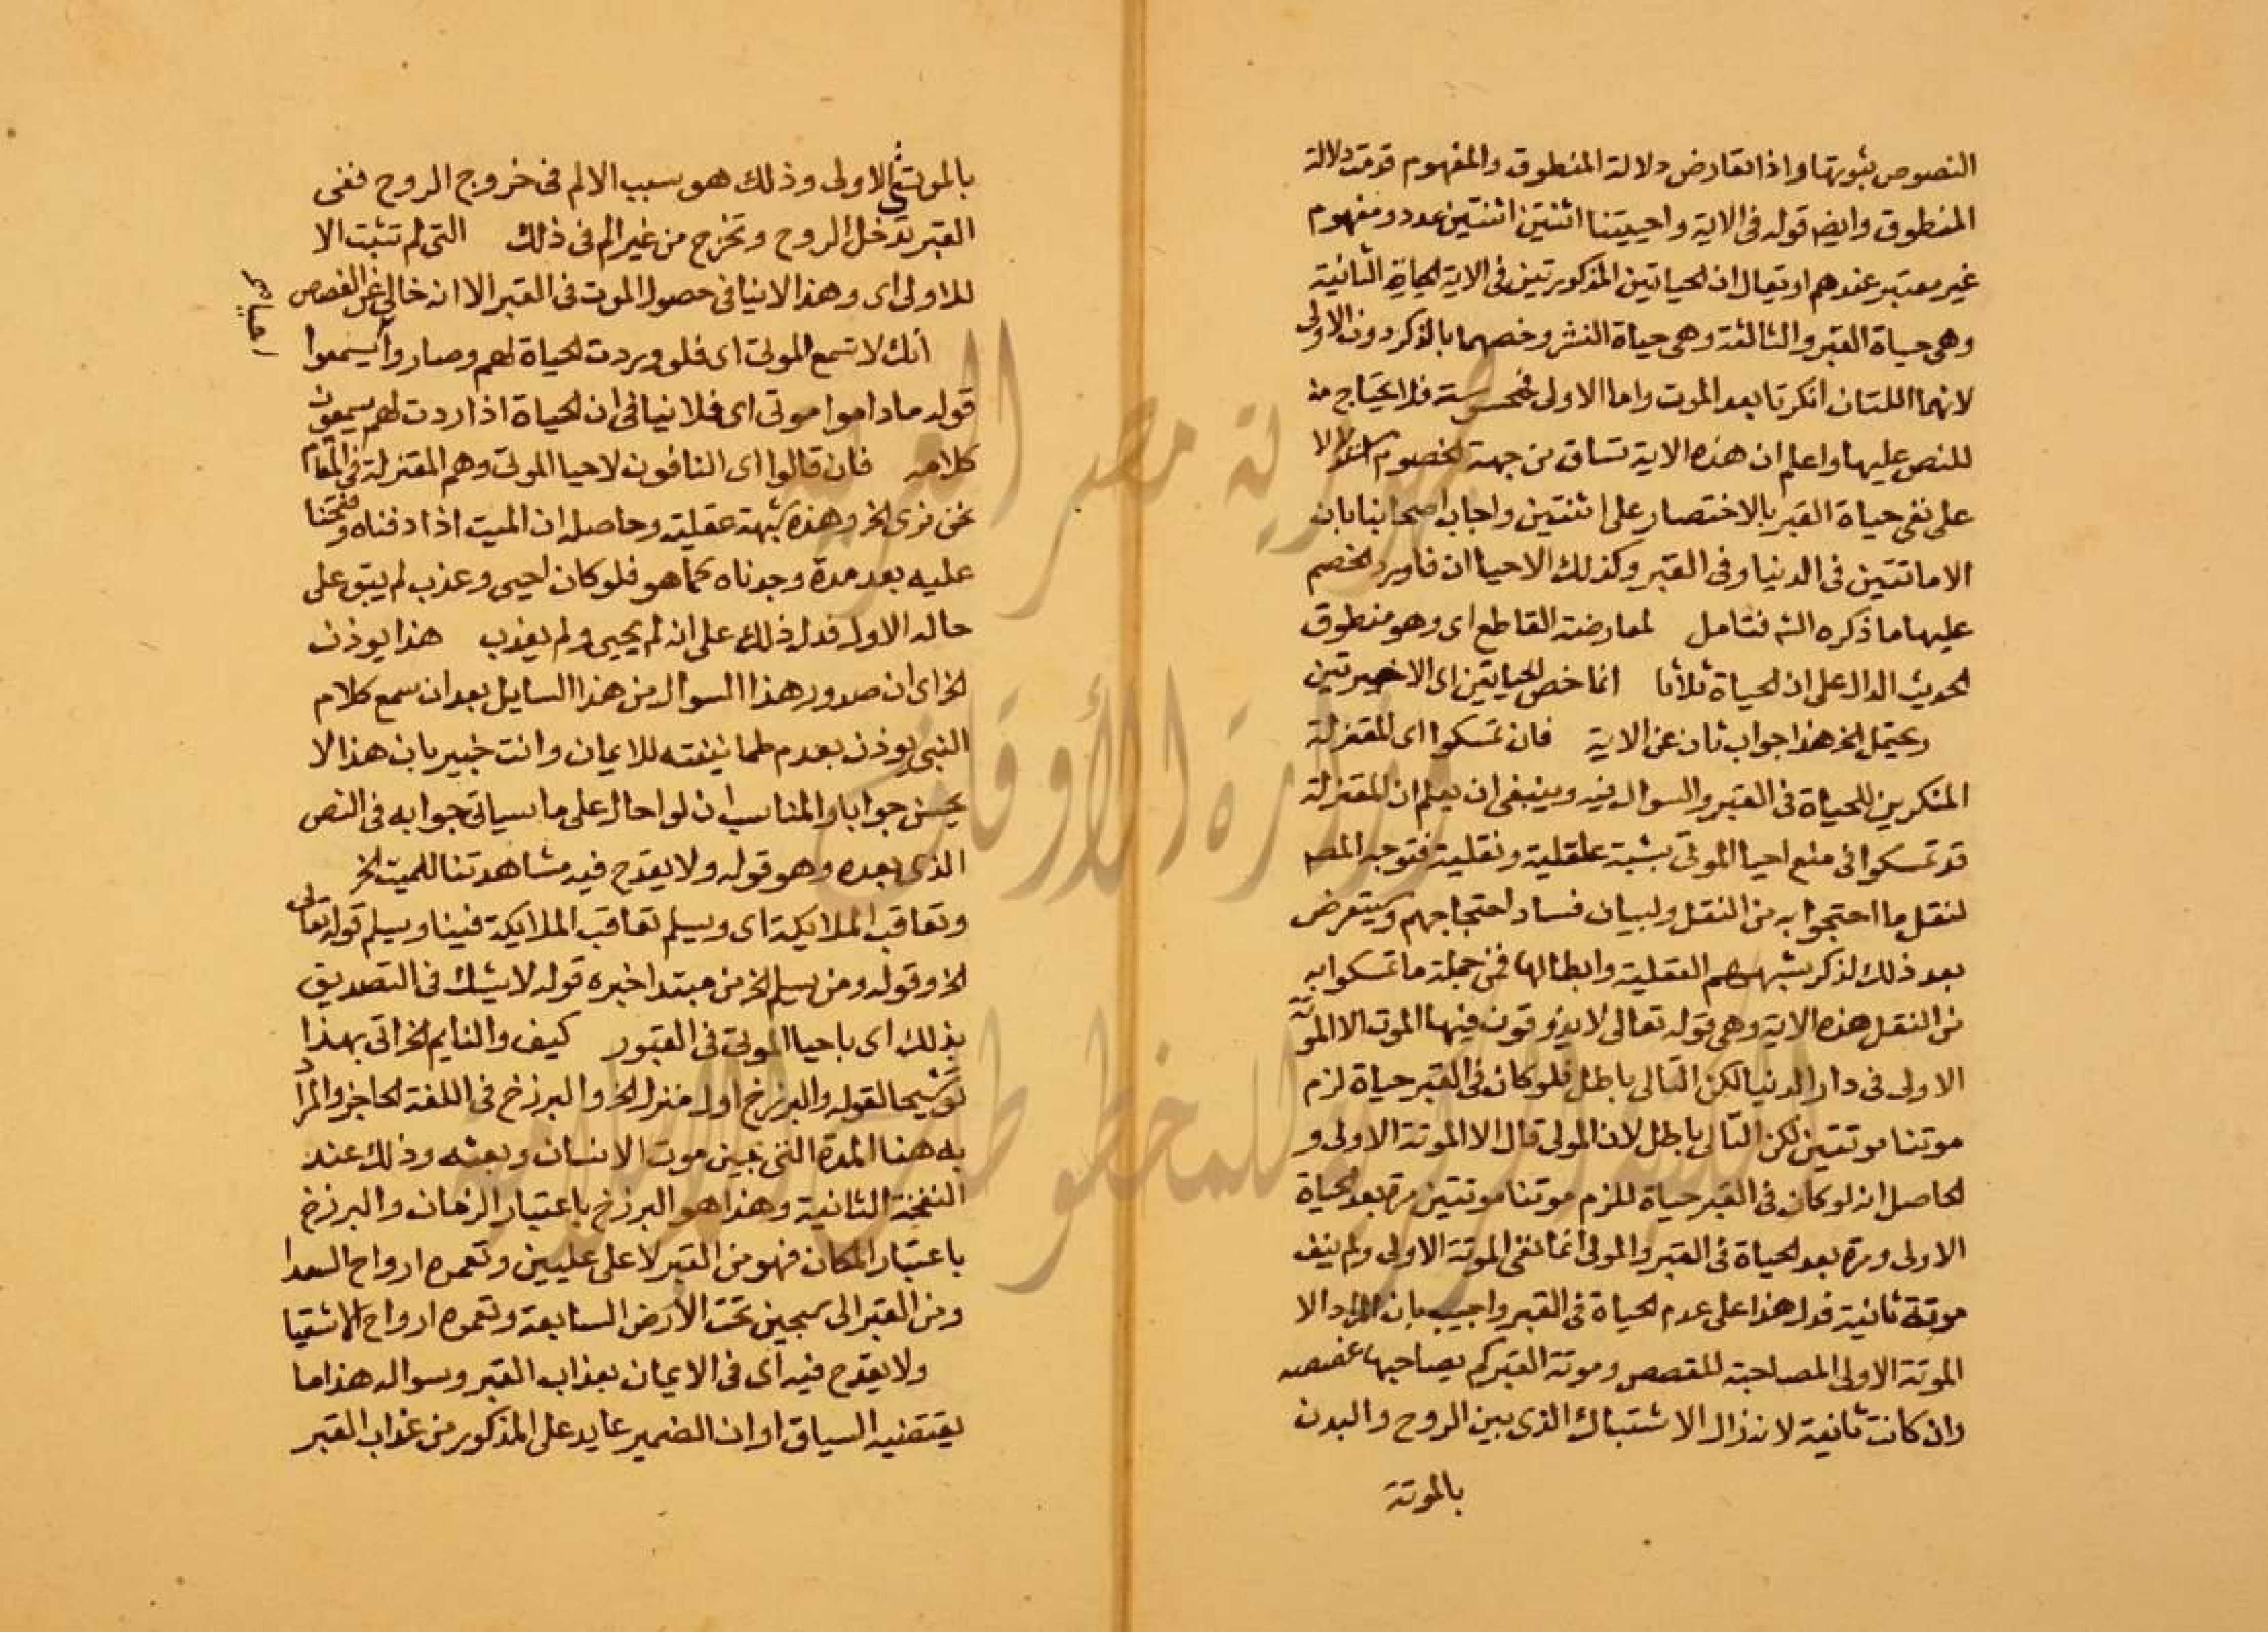 النصوص بثبوتها واذا تعارض دلالة المنطوق والمفهوم قدمت دلالة
المنطوق وايضا قوله فى الاية واحييتنا اثنتين اثنتين عدد ومفهوم
غير معتبر عندهم او يقال ان الحياتين المذكورتين فى الاية الحياة الثانية
وهى حياة القبر والثالثة وهى حياة النشر وخصهما بالذكر دون الاولى
لانهما اللتان انكرتا بعد الموت واما الاولى فمحسوسة فلا يحتاج
للنص عليها واعلم ان هذه الاية تساق من جهة الخصوم
على نفى حياة القبر بالاختصار على اثنتين واجاب اصحابنا بان
الاماتتين فى الدنيا وفى القبر وكذلك الاحياان فاورد الخصم
عليها ما ذكره الشه فتامل لمعارضة القاطع اى وهو منطوق
الحديث الدال على ان الحياة ثلاثا انما خص الحياتين اى الاخيرتين
ويحتمل الخ هذا جواب ثان عن الاية فان تمسكوا اى المعتزلة
المنكرين للحياة فى القبر والسوال فيه وينبغى ان يعلم ان المعتزلة
قد تمسكوا فى منع احيا الموتى بشبه عقلية ونقلية فتوجه المصه
لنقل ما احتجوا به من النقل ولبيان فساد احتجاجهم وسيتعرض
بعد ذلك لذكر شبههم العقلية وابطالها فمن جملة ما تمسكوا به
من النقل هذه الاية وهى قوله تعالى لا يذوقون فيها الموت الا الموتة
الاولى فى دار الدنيا لكن التالى باطل فلو كان فى القبر حياة لزم
موتنا موتتين لكن التالى باطل لان المولى قال الا الموتة الاولى و
الحاصل انه لو كان فى القبر حياة للزم موتنا موتتين مرة بعد الحياة
الاولى ومرة بعد الحياة فى القبر والمولى انما نفى الموتة الاولى ولم ينف
موتة ثانية فدل هذا على عدم الحياة فى القبر واجيب بان المراد الا
الموتة الاولى المصاحبة للغصص وموتة القبر لم يصاحبها غصص
وان كانت ثانية لانه زال الاشتباك الذى بين الروح والبدن
بالموتة
بالموتة الاولى وذلك هو سبب الالم فى خروج الروح ففى
القبر تدخل الروح وتخرج من غير الم فى ذلك التى لم تثبت الا
للاولى اى وهذا لا ينافى حصول الموت فى القبر الا انه خالى عن الغصص
انك لا تسمع الموتى اى فلو وردت الحياة لهم وصاروا احيا يسمعوا
قوله ما داموا موتى اى فلا ينافى ان الحياة اذا ردت لهم يسمعون
كلامه فان قالوا اى النافون لاحيا الموتى وهم المعتزلة فى المقام
نحن نرى الخ وهذه شبهة عقلية وحاصله ان الميت اذا دفناه وفتحنا
عليه بعد مدة وجدناه كما هو فلو كان احيى وعذب لم يبق على
حاله الاول فدل ذلك على انه لم يحيى ولم يعذب هذا يوذن
الخ اى ان صدور هذا السوال من هذا السايل بعد ان سمع كلام
النبى يوذن بعدم طمانينته للايمان وانت خبير بان هذا لا
يحسن جوابا والمناسب ان لو احال على ما سياتى جوابه فى النص
الذى بعده وهو قوله ولا يقدح فيه مشاهدتنا للميت الخ
وتعاقب الملايكة اى ويسلم تعاقب الملايكة فينا ويسلم قوله تعالى
الخ وقوله ومن يسلم الخ من مبتدا خبره قوله لا يشك فى التصديق
بذلك اى باحيا الموتى فى القبور كيف والنايم الخ اتى بهذا
توشيحا لقوله والبرزخ اول منزل الخ والبرزخ فى اللغة الحاجز والمراد
به هنا المدة التى بين موت الانسان وبعثه وذلك عند
النفخة الثانية وهذا هو البرزخ باعتبار الزمان والبرزخ
باعتبار المكان فهو من القبر لاعلى عليين وتعمره ارواح السعدا
ومن القبر الى سجين تحت الارض السابعة وتعمره ارواح الاشقيا
ولا يقدح فيه اى فى الايمان بعذاب القبر وسواله هذا ما
يقتضيه السياق او ان الضمير عايد على المذكور من عذاب القبر
جمهورية مصر العربية
وزارة الأوقاف